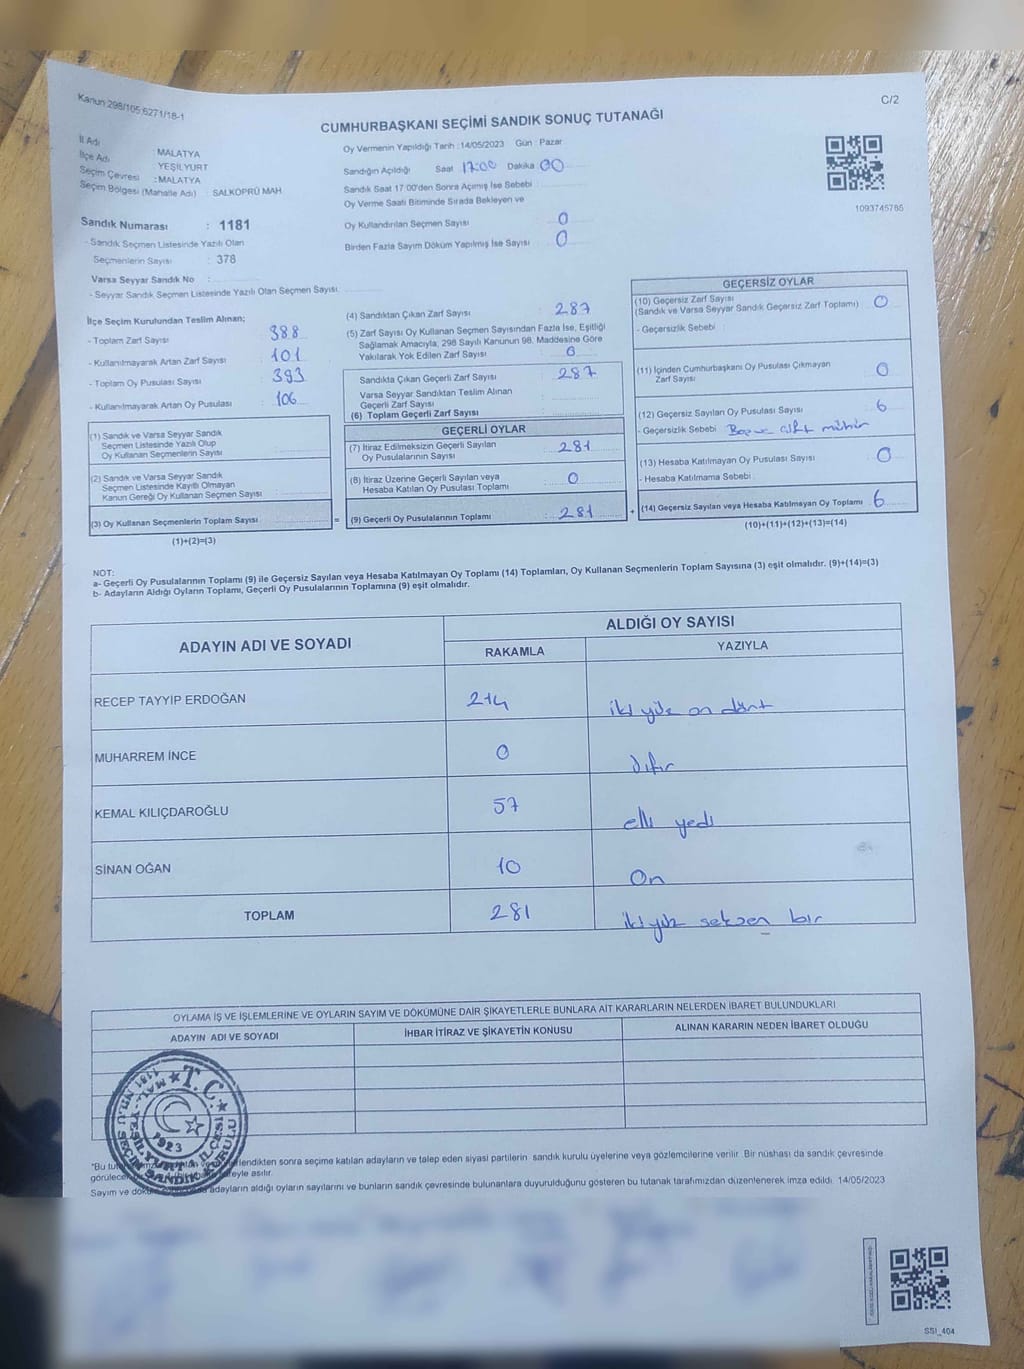 Kanun:298/105;6271/18-1
C/2
CUMHURBAŞKANI SEÇİMİ SANDIK SONUÇ TUTANAĞI
İl Adı : MALATYA
İlçe Adı YEŞİLYURT
Seçim Çevresi : MALATYA
Seçim Bölgesi (Mahalle Adı) : SALKÖPRÜ MAH.
Oy Vermenin Yapıldığı Tarih : 14/05/2023 Gün : Pazar
Sandığın Açıldığı Saat 17:00 Dakika 00
Sandık Saat 17 00'den Sonra Açımış İse Sebebi :
Oy Verme Saati Bitiminde Sırada Bekleyen ve
Oy Kullandırılan Seçmen Sayısı 0
Birden Fazla Sayım Döküm Yapılmış İse Sayısı : 0
1093745785
Sandık Numarası : 1181
- Sandık Seçmen Listesinde Yazılı Olan
Seçmenlerin Sayısı : 378
Varsa Seyyar Sandık No :
- Seyyar Sandık Seçmen Listesinde Yazılı Olan Seçmen Sayısı.
İlçe Seçim Kurulundan Teslim Alınan;
- Toplam Zarf Sayısı : 388
- Kullanılmayarak Artan Zarf Sayısı : 101
- Toplam Oy Pusulası Sayısı : 393
- Kullanılmayarak Artan Oy Pusulası : 106
(1) Sandık ve Varsa Seyyar Sandık
Seçmen Listesinde Yazılı Olup
Oy Kullanan Seçmenlerin Sayısı
(2) Sandık ve Varsa Seyyar Sandık
Seçmen Listesinde Kayıtlı Olmayan
Kanun Gereği Oy Kullanan Seçmen Sayısı :
(3) Oy Kullanan Seçmenlerin Toplam Sayısı
(1)+(2)=(3)
=
(4) Sandıktan Çıkan Zarf Sayısı : 287
(5) Zarf Sayısı Oy Kullanan Seçmen Sayısından Fazla İse, Eşitliği
Sağlamak Amacıyla; 298 Sayılı Kanunun 98. Maddesine Göre
Yakılarak Yok Edilen Zarf Sayısı : 0
Sandıkta Çıkan Geçerli Zarf Sayısı : 287
Varsa Seyyar Sandıktan Teslim Alınan
Geçerli Zarf Sayısı
(6) Toplam Geçerli Zarf Sayısı
GEÇERLİ OYLAR
(7) İtiraz Edilmeksizin Geçerli Sayılan
Oy Pusulalarının Sayısı : 281
(8) İtiraz Üzerine Geçerli Sayılan veya
Hesaba Katılan Oy Pusulası Toplamı 0
(9) Geçerli Oy Pusulalarının Toplamı : 281
+
GEÇERSİZ OYLAR
(10) Geçersiz Zarf Sayısı
(Sandık ve Varsa Seyyar Sandık Geçersiz Zarf Toplamı) : 0
- Geçersizlik Sebebi :
(11) İçinden Cumhurbaşkanı Oy Pusulası Çıkmayan
Zarf Sayısı : 0
(12) Geçersiz Sayılan Oy Pusulası Sayısı : 6
- Geçersizlik Sebebi : Boş ve çift mühür
(13) Hesaba Katılmayan Oy Pusulası Sayısı : 0
- Hesaba Katılmama Sebebi
(14) Geçersiz Sayılan veya Hesaba Katılmayan Oy Toplamı 6
(10)+(11)+(12)+(13)=(14)
NOT:
a- Geçerli Oy Pusulalarının Toplamı (9) ile Geçersiz Sayılan veya Hesaba Katılmayan Oy Toplamı (14) Toplamları, Oy Kullanan Seçmenlerin Toplam Sayısına (3) eşit olmalıdır. (9)+(14)=(3)
b- Adayların Aldığı Oyların Toplamı, Geçerli Oy Pusulalarının Toplamına (9) eşit olmalıdır.
ADAYIN ADI VE SOYADI
ALDIĞI OY SAYISI
RAKAMLA YAZIYLA
RECEP TAYYİP ERDOĞAN 214 iki yüz on dört
MUHARREM İNCE 0 sıfır
KEMAL KILIÇDAROĞLU 57 elli yedi
SİNAN OĞAN 10 On
TOPLAM 281 iki yüz seksen bir
OYLAMA İŞ VE İŞLEMLERİNE VE OYLARIN SAYIM VE DÖKÜMÜNE DAİR ŞİKAYETLERLE BUNLARA AİT KARARLARIN NELERDEN İBARET BULUNDUKLARI
ADAYIN ADI VE SOYADI İHBAR İTİRAZ VE ŞİKAYETİN KONUSU ALINAN KARARIN NEDEN İBARET OLDUĞU
T.C.
1923
*Bu lendikten sonra seçime katılan adayların ve talep eden siyasi partilerin sandık kurulu üyelerine veya gözlemcilerine verilir. Bir nüshası da sandık çevresinde
görülecek süreyle asılır.
Sayım ve adayların aldığı oyların sayılarını ve bunların sandık çevresinde bulunanlara duyurulduğunu gösteren bu tutanak tarafımızdan düzenlenerek imza edildi. 14/05/2023
SSI_404